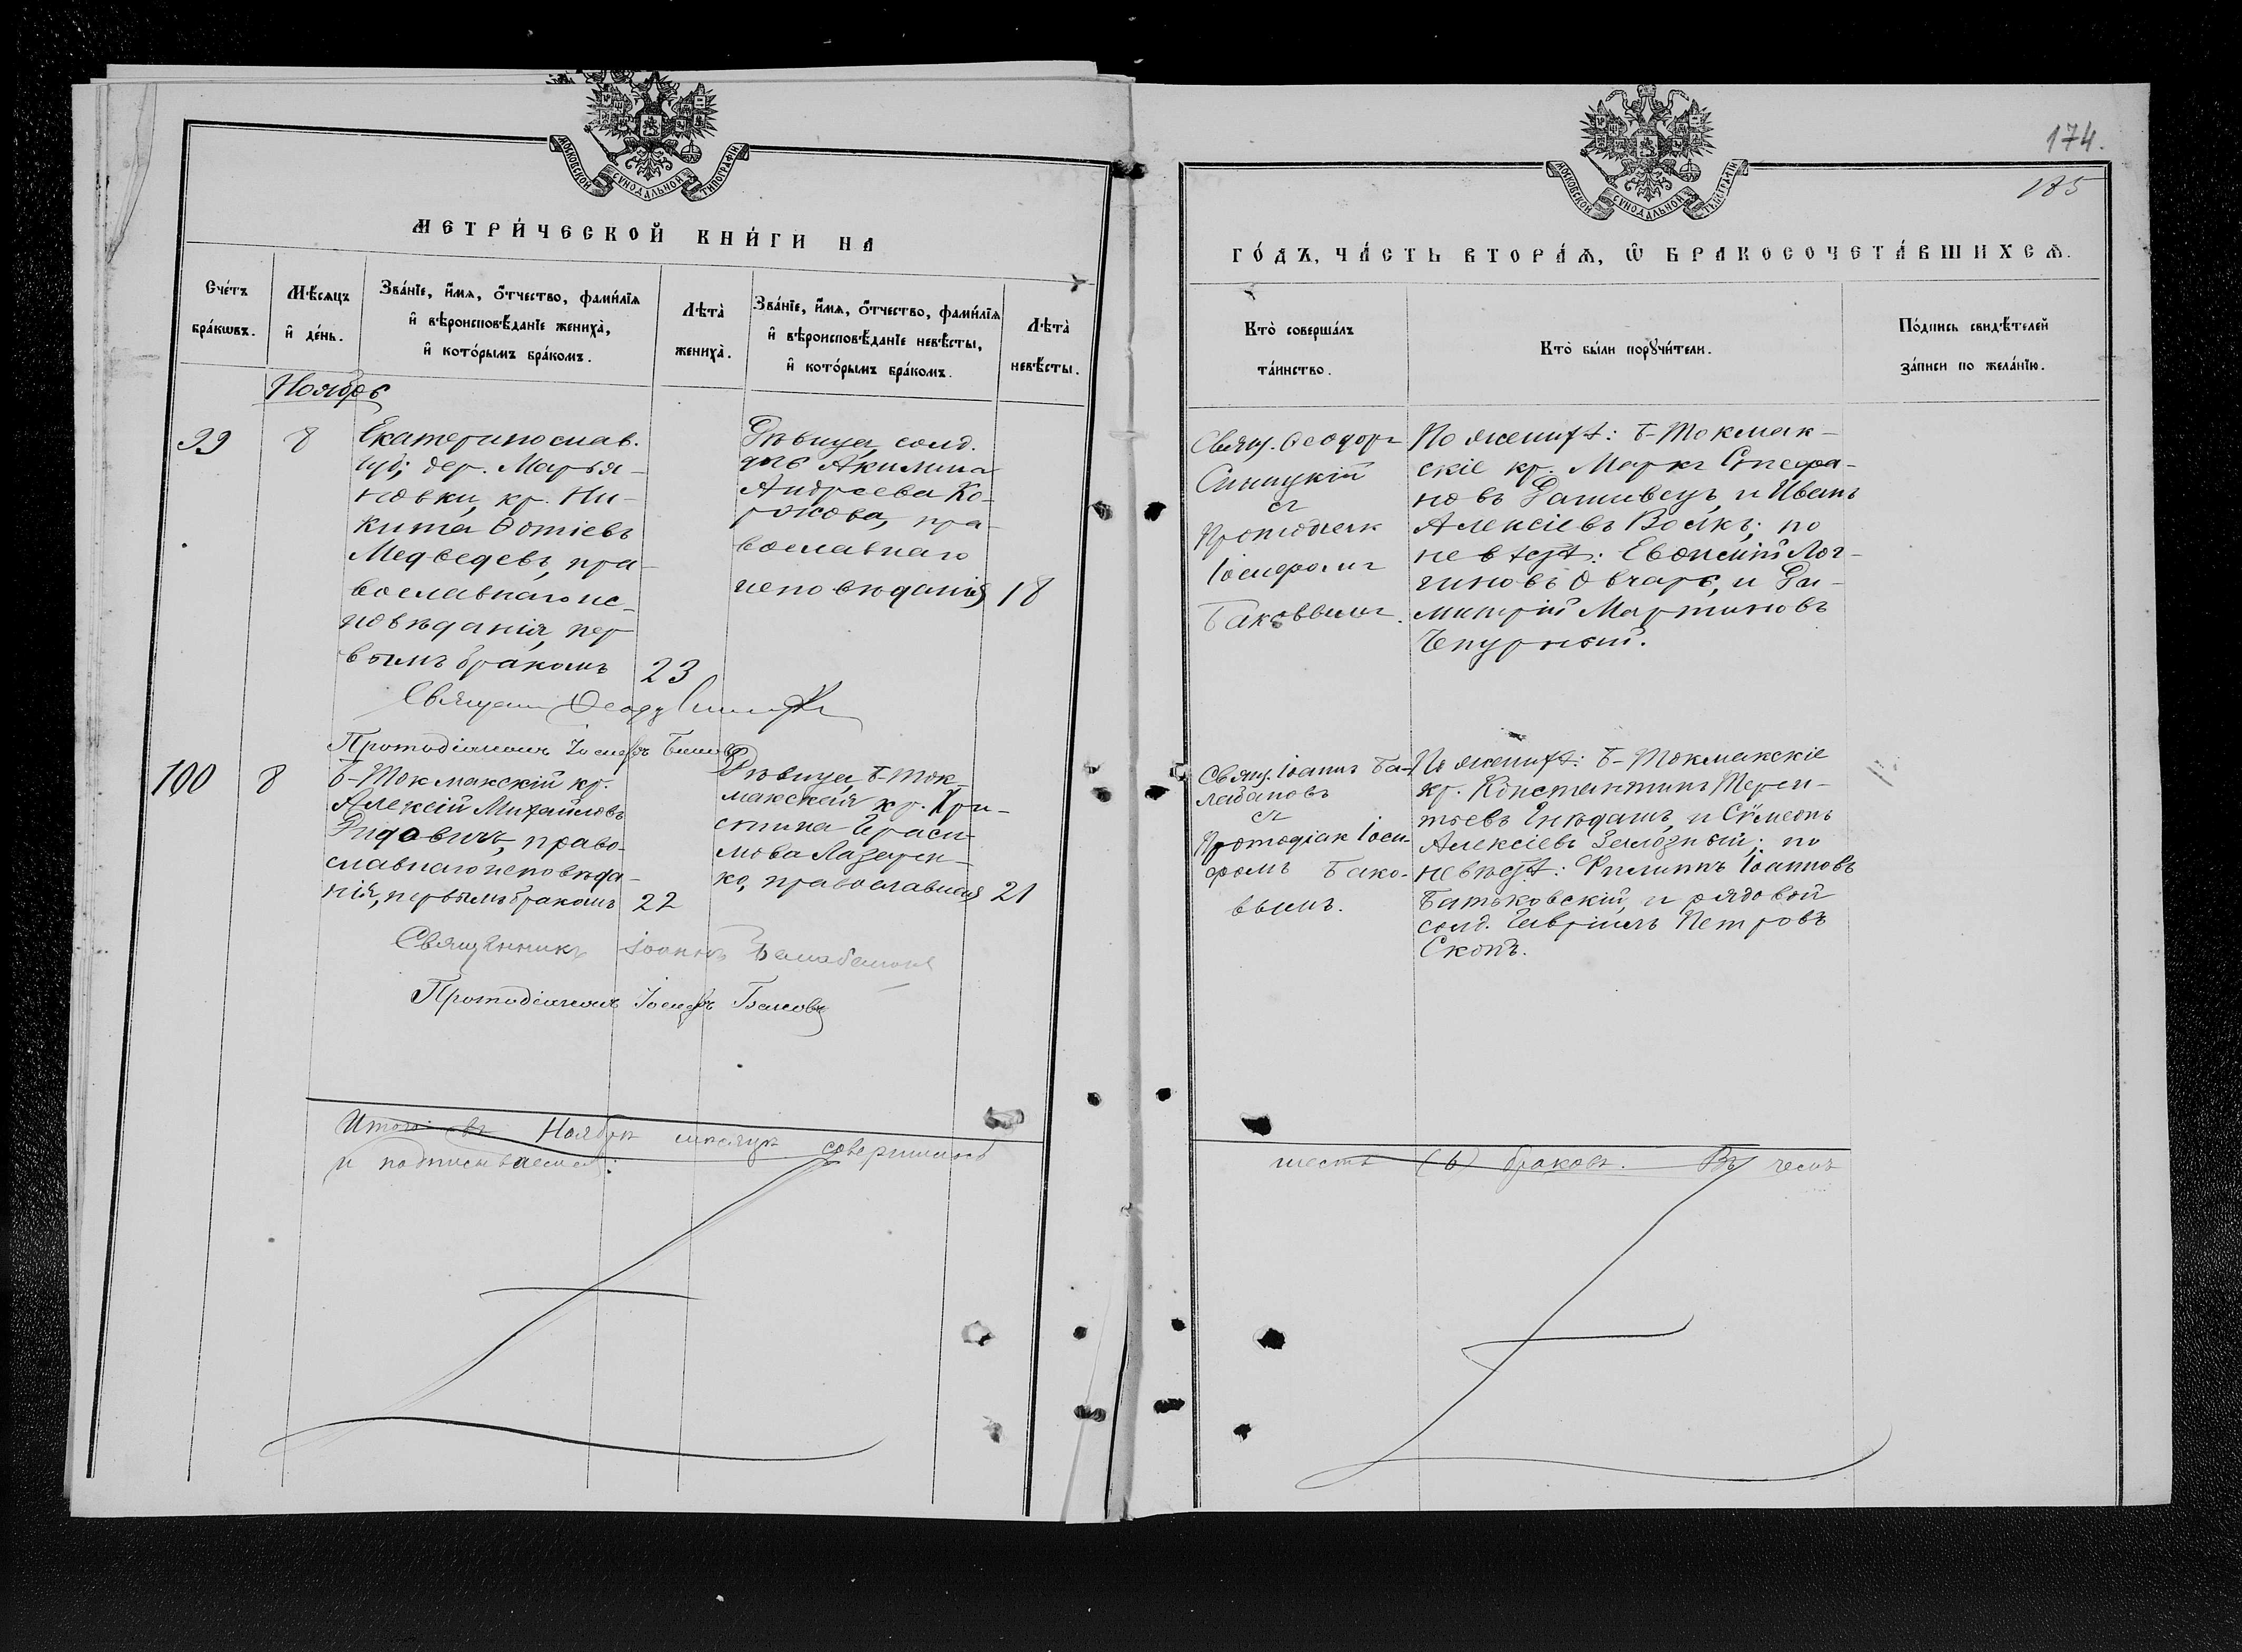 МОСКОВСКОЙ СѴНОДАЛЬНОЙ ТИПОГРАФІИ
МЕТРИ́ЧЕСКОЙ КНИ́ГИ НА
Сче́тъ бра́кѡвъ.
Мѣ́сяцъ и҆ де́нь.
Зва́нїе, и҆́мѧ, ѻ҆́тчество, фами́лїѧ
и҆ вѣроисповѣ́данїе жениха̀,
и҆ кото́рымъ бра́комъ.
Лѣта̀ жениха̀.
Зва́нїе, и҆́мѧ, ѻ҆́тчество, фами́лїѧ
и҆ вѣроисповѣ́данїе невѣ́сты,
и҆ кото́рымъ бра́комъ.
Лѣта̀ невѣ́сты.
Ноябрь
99
8
Екатеринослав.
губ; дер. Марья-
новки, кр. Ни-
кита Ѳотіевъ
Медведевъ, пра-
вославнаго ис-
повѣданія, пер
вымъ бракомъ
23
Дѣвица, солд.
дчь Акилина
Андреева Ко-
ржова, пра-
вославнаго
исповѣданія
18
Протодіаконъ Іосифъ Баковъ
100
8
Б-Токмакскій кр.
Алексій Михайловъ
Дидовичъ, право-
славнаго исповѣда-
нія, первымъ бракомъ
22
Дѣвица, Б-Ток
макская кр. Хри-
стина Гераси-
мова Лазарен-
ко, православная
21
Священникъ Іоаннъ Балабановъ
Протодіаконъ Іосифъ Баковъ
Итого въ Ноябрѣ мѣсяцѣ совершено
и подписываемся:
174.
185
МОСКОВСКОЙ СѴНОДАЛЬНОЙ ТИПОГРАФІИ
ГО́ДЪ, ЧА́СТЬ ВТОРА́Ѧ, Ѽ БРАКОСОЧЕТА́ВШИХСѦ.
Кто̀ соверша́лъ
та́инство.
Кто̀ бы́ли порꙋчи́тели.
По́дпись свидѣ́телей
за́писи по жела́нїю.
Свящ. Ѳеодоръ
Синицкій
съ
Протодіак
Іосифомъ
Баковымъ.
По женихѣ: Б-Токмак-
скіе кр. Маркъ Стефа-
новъ Дашивецъ, и Иванъ
Алексіевъ Волкъ; по
невѣстѣ: Евѳимій Лог-
гиновъ Овчарь, и Ди-
митрій Мартиновъ
Чепурный.
Свящ. Іоаннъ Ба-
лабановъ
съ
Протодіак Іоси-
фомъ Бако-
вымъ.
По женихѣ: Б-Токмакскіе
кр. Константинъ Терен-
тьевъ Гнѣдашъ, и Сѵмеонъ
Алексіевъ Зализный; по
невѣстѣ: Филиппъ Іоанновъ
Батьковскій, и рядовой
солд. Гавріилъ Петровъ
Скопъ.
шесть (6) браковъ. Въ чемъ